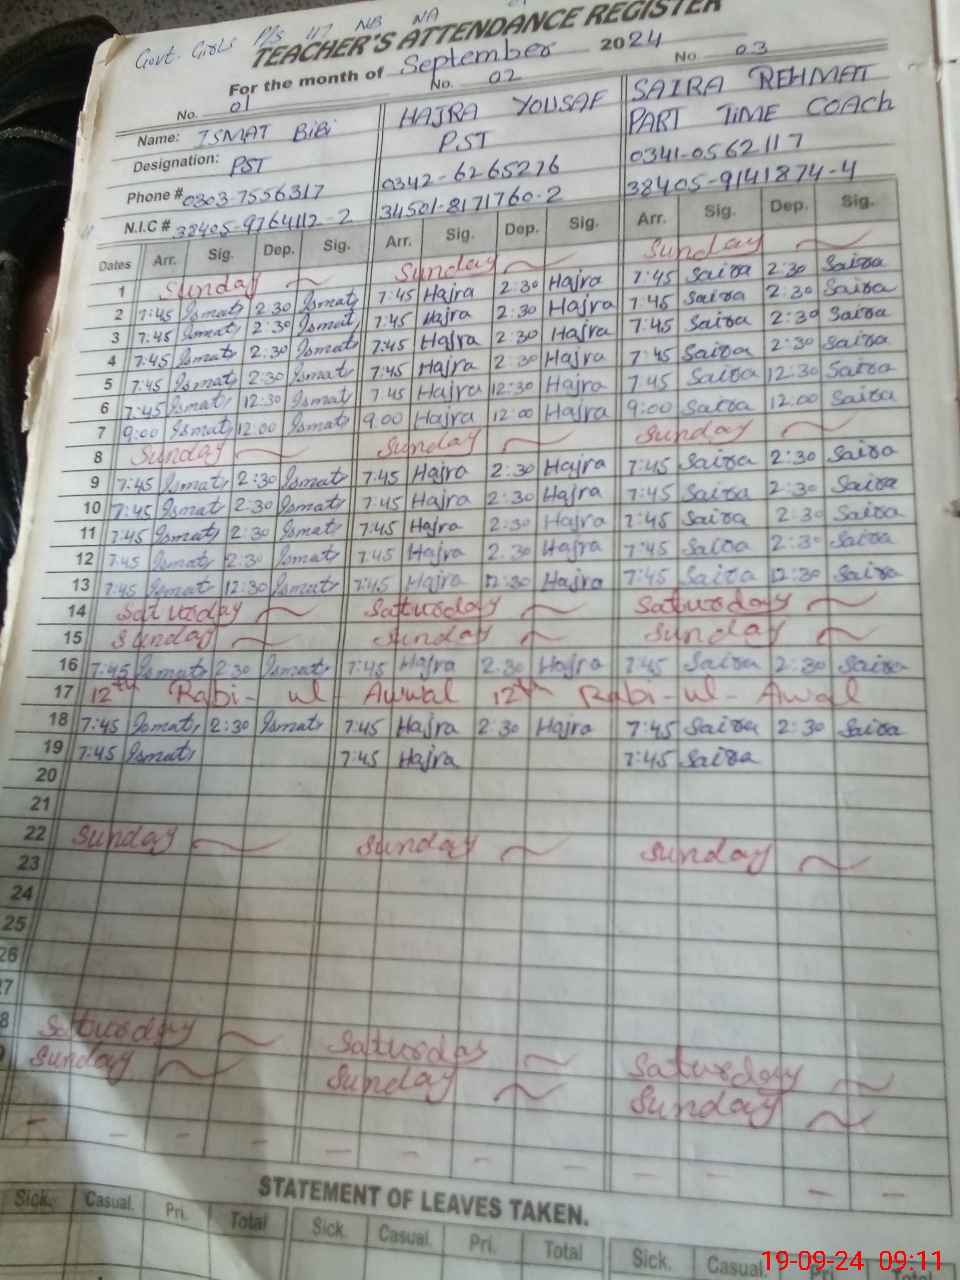 Govt. Girls P/S 117 NB NA
TEACHER'S ATTENDANCE REGISTER
For the month of September 2024
No. 01 No. 02 No. 03
Name: ISMAT BiBi HAJRA YOUSAF SAIRA REHMAT
Designation: PST PST PART TIME COACH
Phone # 0303-7556317 0342-6265276 0341-0562117
N.I.C # 38405-9764112-2 34501-8171760-2 38405-9141874-4
Dates Arr. Sig. Dep. Sig. Arr. Sig. Dep. Sig. Arr. Sig. Dep. Sig.
1 Sunday Sunday Sunday
2 7:45 Ismat 2:30 Ismat 7:45 Hajra 2:30 Hajra 7:45 Saira 2:30 Saira
3 7:45 Ismat 2:30 Ismat 7:45 Hajra 2:30 Hajra 7:45 Saira 2:30 Saira
4 7:45 Ismat 2:30 Ismat 7:45 Hajra 2:30 Hajra 7:45 Saira 2:30 Saira
5 7:45 Ismat 2:30 Ismat 7:45 Hajra 2:30 Hajra 7:45 Saira 2:30 Saira
6 7:45 Ismat 12:30 Ismat 7:45 Hajra 12:30 Hajra 7:45 Saira 12:30 Saira
7 9:00 Ismat 12:00 Ismat 9:00 Hajra 12:00 Hajra 9:00 Saira 12:00 Saira
8 Sunday Sunday Sunday
9 7:45 Ismat 2:30 Ismat 7:45 Hajra 2:30 Hajra 7:45 Saira 2:30 Saira
10 7:45 Ismat 2:30 Ismat 7:45 Hajra 2:30 Hajra 7:45 Saira 2:30 Saira
11 7:45 Ismat 2:30 Ismat 7:45 Hajra 2:30 Hajra 7:45 Saira 2:30 Saira
12 7:45 Ismat 2:30 Ismat 7:45 Hajra 2:30 Hajra 7:45 Saira 2:30 Saira
13 7:45 Ismat 12:30 Ismat 7:45 Hajra 12:30 Hajra 7:45 Saira 12:30 Saira
14 Saturday Saturday Saturday
15 Sunday Sunday Sunday
16 7:45 Ismat 2:30 Ismat 7:45 Hajra 2:30 Hajra 7:45 Saira 2:30 Saira
17 12th Rabi-ul-Awwal 12th Rabi-ul-Awal
18 7:45 Ismat 2:30 Ismat 7:45 Hajra 2:30 Hajra 7:45 Saira 2:30 Saira
19 7:45 Ismat 7:45 Hajra 7:45 Saira
20
21
22 Sunday Sunday Sunday
23
24
25
26
7
8 Saturday Saturday Saturday
Sunday Sunday Sunday
STATEMENT OF LEAVES TAKEN.
Sick. Casual. Pri. Total Sick. Casual. Pri. Total Sick. Casual. Pri. Total
19-09-24 09:11